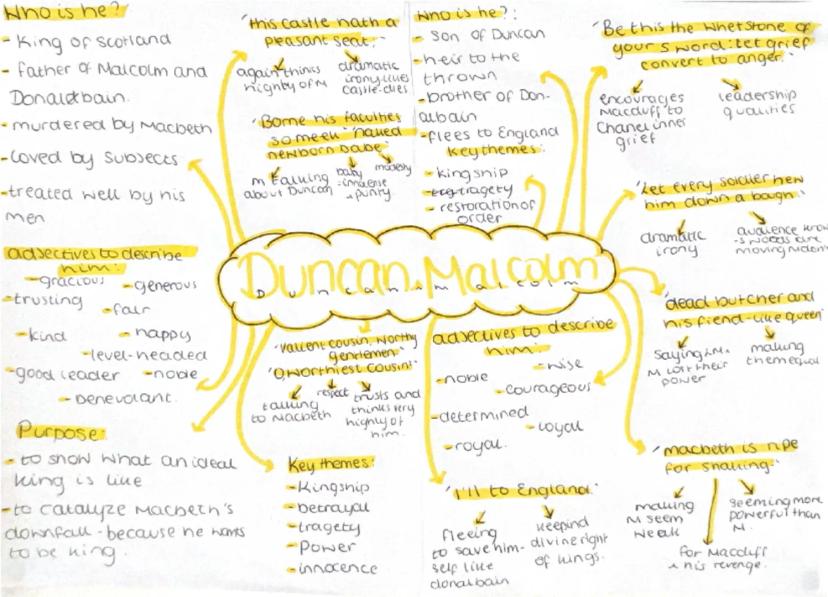 Who is he?
- King of Scotland
- father of Malcolm and
Donaldbain.
- murdered by Macbeth
- loved by subjects
- treated well by his
men
adjectives to describe
him:
- gracious
- generous
- trusting
- fair
- kind
- happy
- level-headed
- good leader
- noble
- benevolant.
Purpose:
- to show what an ideal
king is like
- to catalyze Macbeth's
downfall - because he wants
to be king.
"This castle hath a
pleasant seat."
again thinks
highly of M
dramatic
irony
castle-dies
"Borne his faculties
so meek" "naked
newborn babe"
M talking
about Duncan
baby
= innocense
+ purity
modesty
Duncan + Malcolm
Duncan + Malcolm
"Valient cousin, worthy
gentlemen"
"O worthiest cousin!"
talking
to Macbeth
respect
trusts and
thinks very
highly of
him.
Key themes:
- Kingship
- betrayal
- tragety
- Power
- innocence
Who is he?:
- son of Duncan
- heir to the
thrown
- brother of Don-
albain
- flees to England
Key themes:
- kingship
- tragety
- restoration of
order
adjectives to describe
him:
- noble
- wise
- courageous
- determined
- loyal
- royal.
"I'll to England"
fleeing
to save him-
self like
donalbain
keepind
divine right
of kings.
"Be this the whetstone of
your sword: let grief
convert to anger."
encourages
Macduff to
Chanel inner
grief
leadership
qualities
"Let every soldier hew
him down a bough."
dramatic
irony
audience know
woods are
moving
"dead butcher and
his fiend-like queen"
saying
M lost their
power
making
them equal
"macbeth is ripe
for shaking."
making
M seem
weak
seeming more
powerful than
M.
for Macduff
+ his revenge.